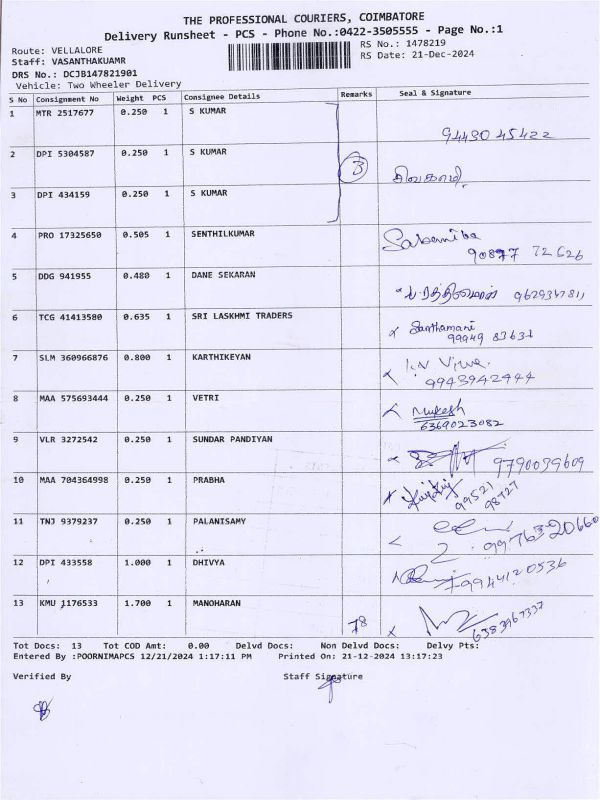 THE PROFESSIONAL COURIERS, COIMBATORE
Delivery Runsheet - PCS - Phone No.:0422-3505555 - Page No.:1
Route: VELLALORE
RS No.: 1478219
Staff: VASANTHAKUAMR
RS Date: 21-Dec-2024
DRS No.: DCJB147821901
Vehicle: Two Wheeler Delivery
S No Consignment No Weight PCS Consignee Details Remarks Seal & Signature
1 MTR 2517677 0.250 1 S KUMAR
9443045422
2 DPI 5304587 0.250 1 S KUMAR 3
சிவகாமி
3 DPI 434159 0.250 1 S KUMAR
4 PRO 17325650 0.505 1 SENTHILKUMAR
90877 72626
5 DDG 941955 0.480 1 DANE SEKARAN
6 TCG 41413580 0.635 1 SRI LASKHMI TRADERS Santhamani
99949 83631
7 SLM 360966876 0.800 1 KARTHIKEYAN
9943942444
8 MAA 575693444 0.250 1 VETRI Mukesh
6369023082
9 VLR 3272542 0.250 1 SUNDAR PANDIYAN 9790039609
10 MAA 704364998 0.250 1 PRABHA 99521
98727
11 TNJ 9379237 0.250 1 PALANISAMY
9976320660
12 DPI 433558 1.000 1 DHIVYA 9944120536
13 KMU 1176533 1.700 1 MANOHARAN 78 6383967337
Tot Docs: 13 Tot COD Amt: 0.00 Delvd Docs: Non Delvd Docs: Delvy Pts:
Entered By :POORNIMAPCS 12/21/2024 1:17:11 PM Printed On: 21-12-2024 13:17:23
Verified By Staff Signature